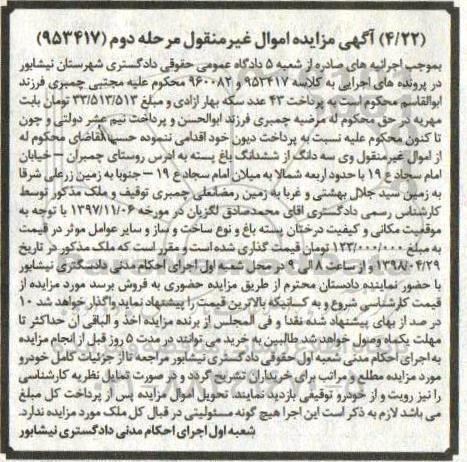 (۴/۲۲) آگهی مزایده اموال غیرمنقول مرحله دوم (۹۵۳۴۱۷)
بموجب اجرائیه های صادره از شعبه ۵ دادگاه عمومی حقوقی دادگستری شهرستان نیشابور
در پرونده های اجرایی به کلاسه ۹۵۳۴۱۷ و ۹۶۰۰۸۲ محکوم علیه مجتبی چمبری فرزند
ابوالقاسم محکوم است به پرداخت ۴۳ عدد سکه بهار ازادی و مبلغ ۳۳/۵۱۳/۵۱۳ تومان بابت
مهریه در حق محکوم له مرضیه چمبری فرزند ابوالحسن و پرداخت نیم عشر دولتی و چون
تا کنون محکوم علیه نسبت به پرداخت دیون خود اقدامی ننموده حسب تقاضای محکوم له
از اموال غیرمنقول وی سه دانگ از ششدانگ باغ پسته به ادرس روستای چمبران – خیابان
امام سجاد ع ۱۹ با حدود اربعه شمالا به میلان امام سجاد ع ۱۹ – جنوبا به زمین زرعلی شرقا
به زمین سید جلال بهشتی و غربا به زمین رمضانعلی چمبری توقیف و ملک مذکور توسط
کارشناس رسمی دادگستری اقای محمدصادق لگزیان در مورخه ۱۳۹۷/۱۱/۰۶ با توجه به
موقعیت مکانی و کیفیت درختان پسته باغ و نوع ساخت و ساز و سایر عوامل موثر در قیمت
به مبلغ ۱۲۳/۰۰۰/۰۰۰ تومان قیمت گذاری شده است و مقرر است که ملک مذکور در تاریخ
۱۳۹۸/۰۴/۲۹ و از ساعت ۸ الی ۹ در محل شعبه اول اجرای احکام مدنی دادگستری نیشابور
با حضور نماینده دادستان محترم از طریق مزایده حضوری به فروش برسد مورد مزایده از
قیمت کارشناسی شروع و به کسانیکه بالاترین قیمت را پیشنهاد نماید واگذار خواهد شد ۱۰
در صد از بهای پیشنهاد شده نقدا و فی المجلس از برنده مزایده اخذ و الباقی آن حداکثر تا
مهلت یکماه وصول خواهد شد طالبین به خرید می توانند در مدت ۵ روز قبل از انجام مزایده
به اجرای احکام مدنی شعبه اول حقوقی دادگستری نیشابور مراجعه تا از جزئیات کامل خودرو
مورد مزایده مطلع و مراتب برای خریداران تشریح گردد و در صورت تمایل نظریه کارشناسی
را نیز رویت و از خودرو توقیفی بازدید نمایند. تحویل اموال مزایده پس از پرداخت کل مبلغ
می باشد لازم به ذکر است این اجرا هیچ گونه مسئولیتی در قبال کل ملک مورد مزایده ندارد.
شعبه اول اجرای احکام مدنی دادگستری نیشابور